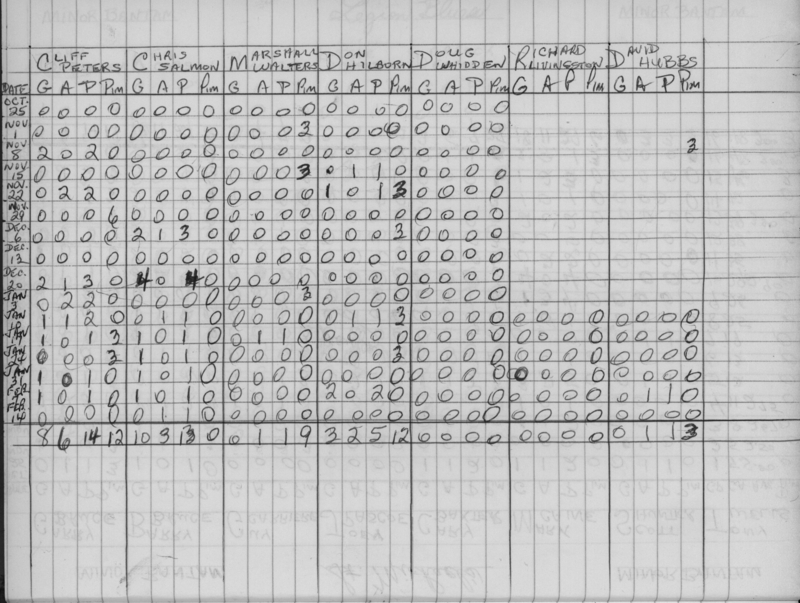 CLIFF PETERS CHRIS SALMON MARSHALL WALTERS DON HILBORN DOUG WHIDDEN RICHARD LIVINGSTON DAVID HUBBS
DATE G A P Pim G A P Pim G A P Pim G A P Pim G A P Pim G A P Pim G A P Pim
OCT. 25 0 0 0 0 0 0 0 0 0 0 0 0 0 0 0 0 0 0 0 0
NOV 1 0 0 0 0 0 0 0 0 0 0 0 3 0 0 0 0 0 0 0 0
NOV 8 2 0 2 0 0 0 0 0 0 0 0 0 0 0 0 0 0 0 0 0 3
NOV. 15 0 0 0 0 0 0 0 0 0 0 0 3 0 1 1 0 0 0 0 0
NOV. 22 0 2 2 0 0 0 0 0 0 0 0 0 1 0 1 3 0 0 0 0
NOV. 29 0 0 0 6 0 0 0 0 0 0 0 0 0 0 0 0 0 0 0 0
DEC. 6 0 0 0 0 2 1 3 0 0 0 0 0 0 0 0 3 0 0 0 0
DEC. 13 0 0 0 0 0 0 0 0 0 0 0 0 0 0 0 0 0 0 0 0
DEC. 20 2 1 3 0 4 0 4 0 0 0 0 0 0 0 0 0 0 0 0 0
JAN 3 0 2 2 0 0 0 0 0 0 0 0 3 0 0 0 0 0 0 0 0
JAN 1 1 2 0 0 1 1 0 0 0 0 0 0 1 1 3 0 0 0 0 0 0 0 0 0 0 0 0
JAN 1 0 1 3 1 0 1 0 0 1 1 0 0 0 0 0 0 0 0 0 0 0 0 0 0 0 0 0
JAN 24 0 0 0 3 1 0 1 0 0 0 0 0 0 0 0 3 0 0 0 0 0 0 0 0 0 0 0 0
JAN 1 0 1 0 1 0 1 0 0 0 0 0 0 0 0 0 0 0 0 0 0 0 0 0 0 0 0 0
FEB 1 0 1 0 1 0 1 0 0 0 0 0 2 0 2 0 0 0 0 0 0 0 0 0 0 1 1 0
FEB 14 0 0 0 0 0 1 1 0 0 0 0 0 0 0 0 0 0 0 0 0 0 0 0 0 0 0 0 0
8 6 14 12 10 3 13 0 0 1 1 9 3 2 5 12 0 0 0 0 0 0 0 0 0 1 1 3